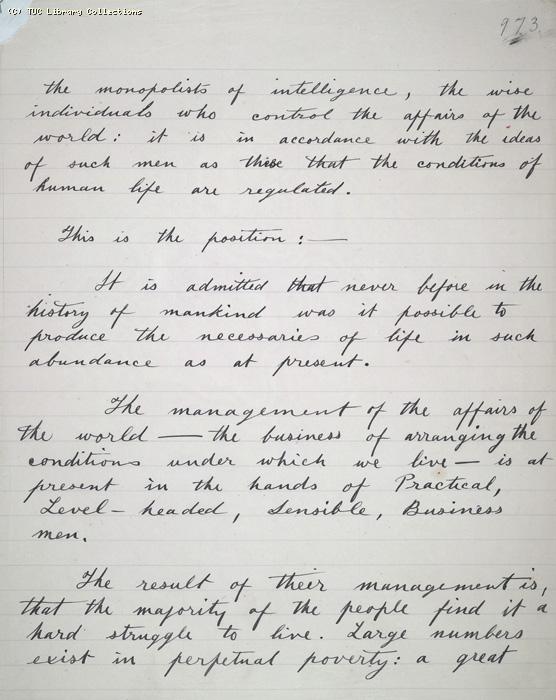 (C) TUC Library Collections
973
the monopolists of intelligence, the wise
individuals who control the affairs of the
world: it is in accordance with the ideas
of such men as these that the conditions of
human life are regulated.
This is the position :—
It is admitted that never before in the
history of mankind was it possible to
produce the necessaries of life in such
abundance as at present.
The management of the affairs of
the world — the business of arranging the
conditions under which we live — is at
present in the hands of Practical,
Level-headed, Sensible, Business
men.
The result of their management is,
that the majority of the people find it a
hard struggle to live. Large numbers
exist in perpetual poverty: a great